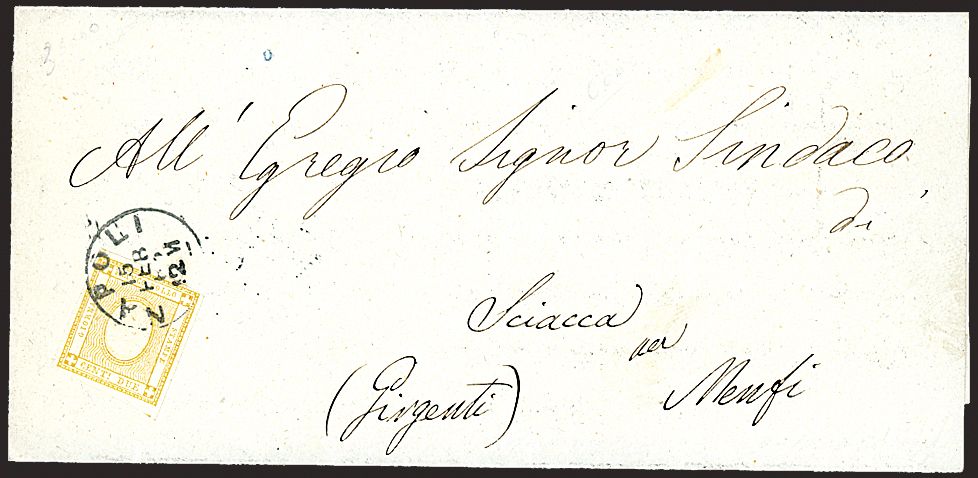 All' Egregio Signor Sindaco
di
Sciacca
per
Menfi
(Girgenti)
NAPOLI
15
FEB
12 M
CENT! DUE